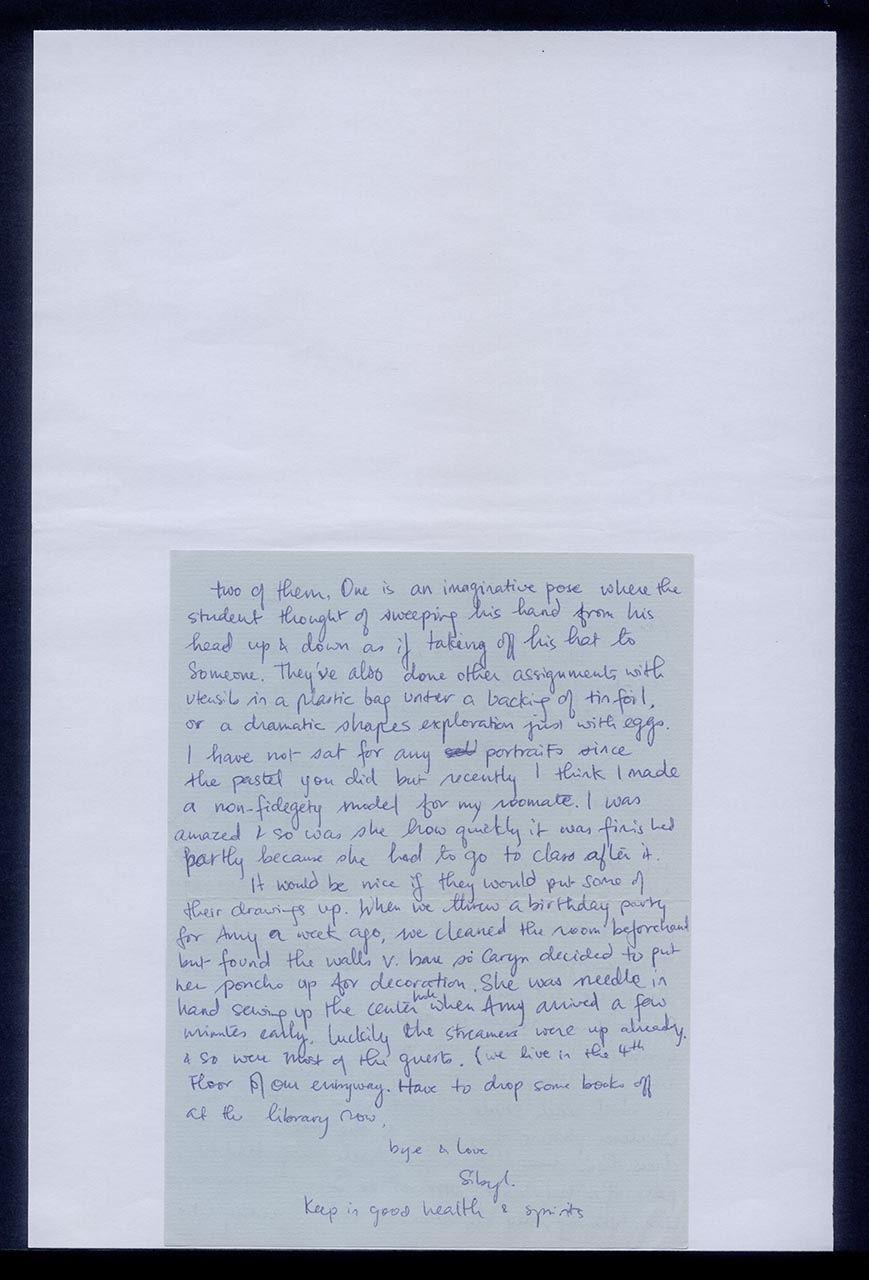 two of them. One is an imaginative pose where the
student thought of sweeping his hand from his
head up & down as if taking off his hat to
someone. They've also done other assignments with
utensils in a plastic bag under a backing of tinfoil,
or a dramatic shapes exploration just with eggs.
I have not sat for any portraits since
the pastel you did but recently I think I made
a non-fidegety model for my roomate. I was
amazed & so was she how quickly it was finished
partly because she had to go to class after it.
It would be nice if they would put some of
their drawings up. When we threw a birthday party
for Amy a week ago, we cleaned the room beforehand
but found the walls v. bare so Caryn decided to put
her poncho up for decoration. She was needle in
hand sewing up the center hole when Amy arrived a few
minutes early. Luckily the streamers were up already.
& so were most of the guests. (we live in the 4th
Floor of our entryway. Have to drop some books off
at the library now,
bye & love
Sibyl.
Keep in good health & spirits